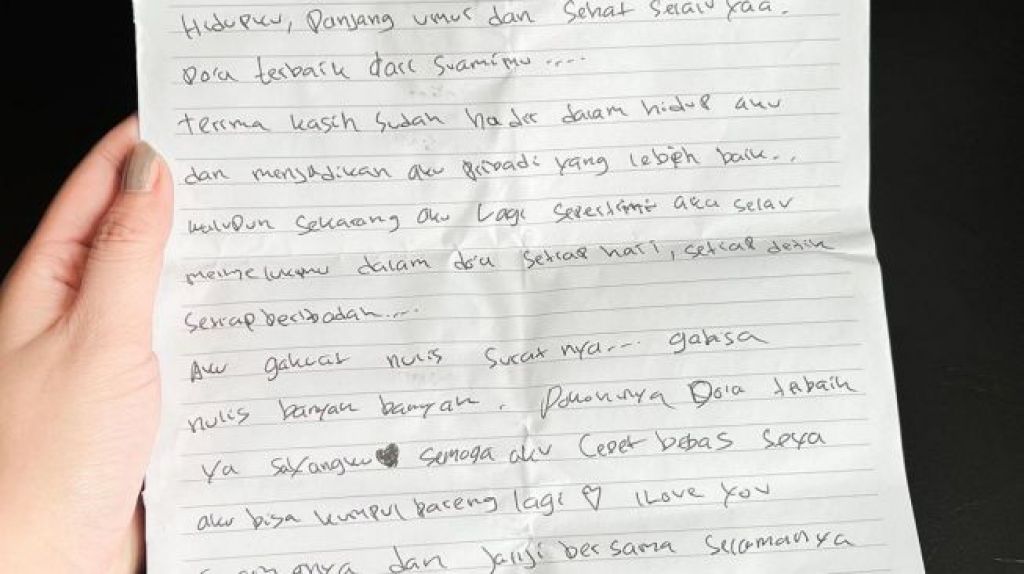 Hidupku, Panjang umur dan Sehat Selalu yaa.
Do'a terbaik dari Suamimu ....
terima kasih sudah hadir dalam hidup aku
dan menjadikan aku pribadi yang lebih baik..
walupun sekarang aku Lagi Seperti ini aku selalu
memelukmu dalam do'a setiap hari, setiap detik
setiap beribadah....
Aku gakuat nulis surat nya... gabisa
nulis banyak banyak. Pokoknya Do'a tebaik
ya sayangku semoga aku Cepet bebas
aku bisa kumpul bareng lagi ♡ I Love You
dan janji bersama Selamanya